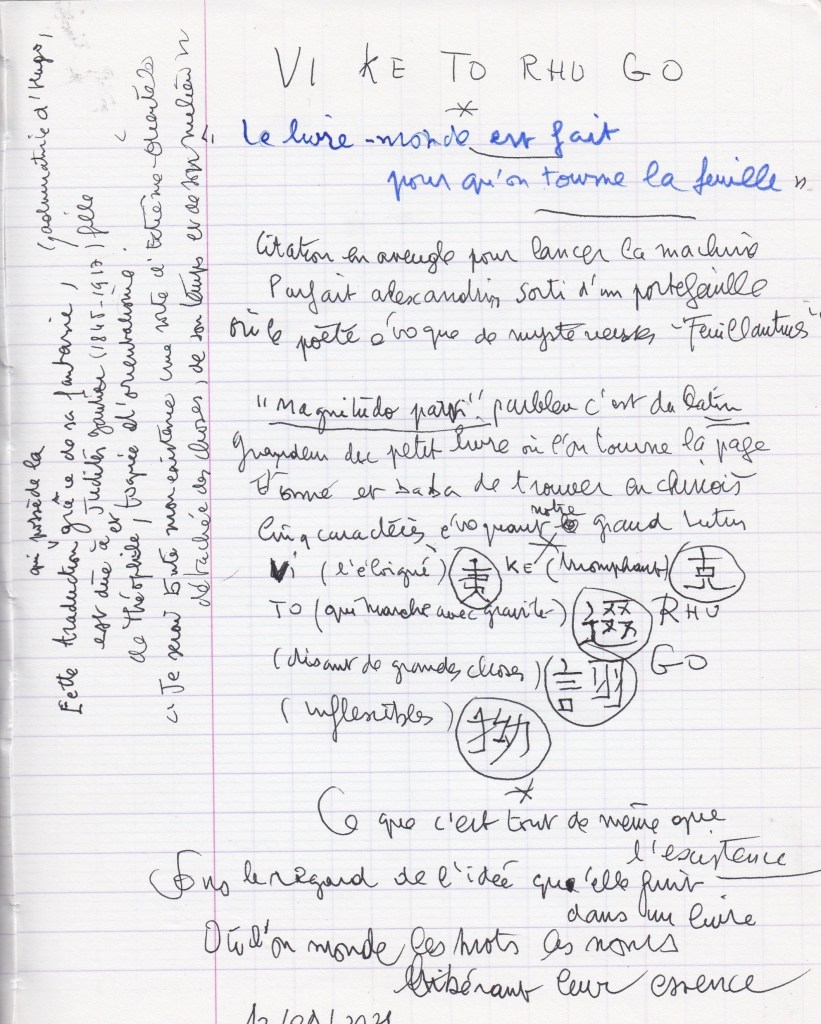 VI KE TO RHU GO
*
"Le livre-monde est fait
pour qu'on tourne la feuille"
Citation en aveugle pour lancer la machine
Parfait alexandrin sorti d'un portefeuille
où le poète évoque de mystérieuses "Feuillantines"
"Magnitudo parvi" parbleu c'est du latin
Grandeur du petit livre où l'on tourne la page
et baba de trouver en chinois
Cinq caractères évoquant notre grand
VI (l'éloigné) KE (triomphant)
TO (qui marche avec gravité) RHU
(disant de grandes choses) GO
(inflexibles) 拗
*
Ce que c'est tout de même que
l'existence
Sous le regard de l'idée qu'elle finit
dans un livre
Où l'on monde les mots les noms
libérant leur essence
qui possède la
Cette traduction grâce de sa fantaisie, (admiratrice d'Hugo,
est due à Judith Gautier (1845-1917) fille
de Théophile, et toquée d'orientalisme :
"Je serai toute mon existence une sorte d'Extrême-Orientale
détachée des choses, de son temps et de son milieu"